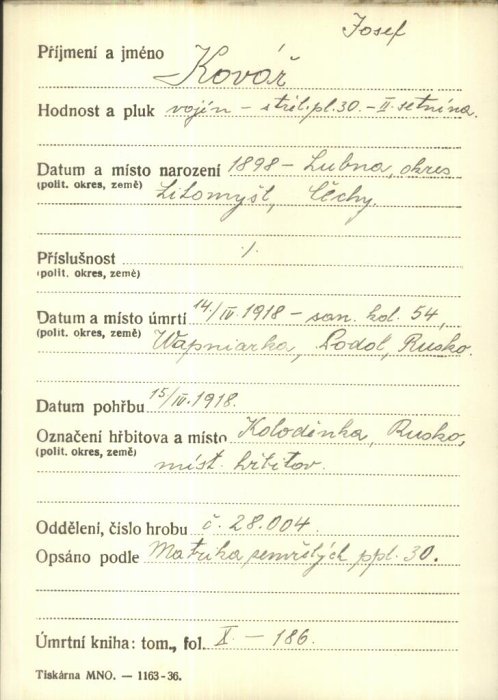 Josef
Příjmení a jméno Kovář
Hodnost a pluk vojín – střel. pl. 30. – II. setnina.
Datum a místo narození 1898 – Lubna, okres
(polit. okres, země) Litomyšl, Čechy.
Příslušnost ./.
(polit. okres, země)
Datum a místo úmrtí 14/IV. 1918 – san. kol. 54,
(polit. okres, země) Wapniarka, Podol, Rusko.
Datum pohřbu 15/IV. 1918.
Označení hřbitova a místo Kolodenka, Rusko,
(polit. okres, země) míst. hřbitov.
Oddělení, číslo hrobu č. 28.004.
Opsáno podle Matrika zemřelých ppl. 30.
Úmrtní kniha: tom., fol. X. – 186.
Tiskárna MNO. — 1163-36.